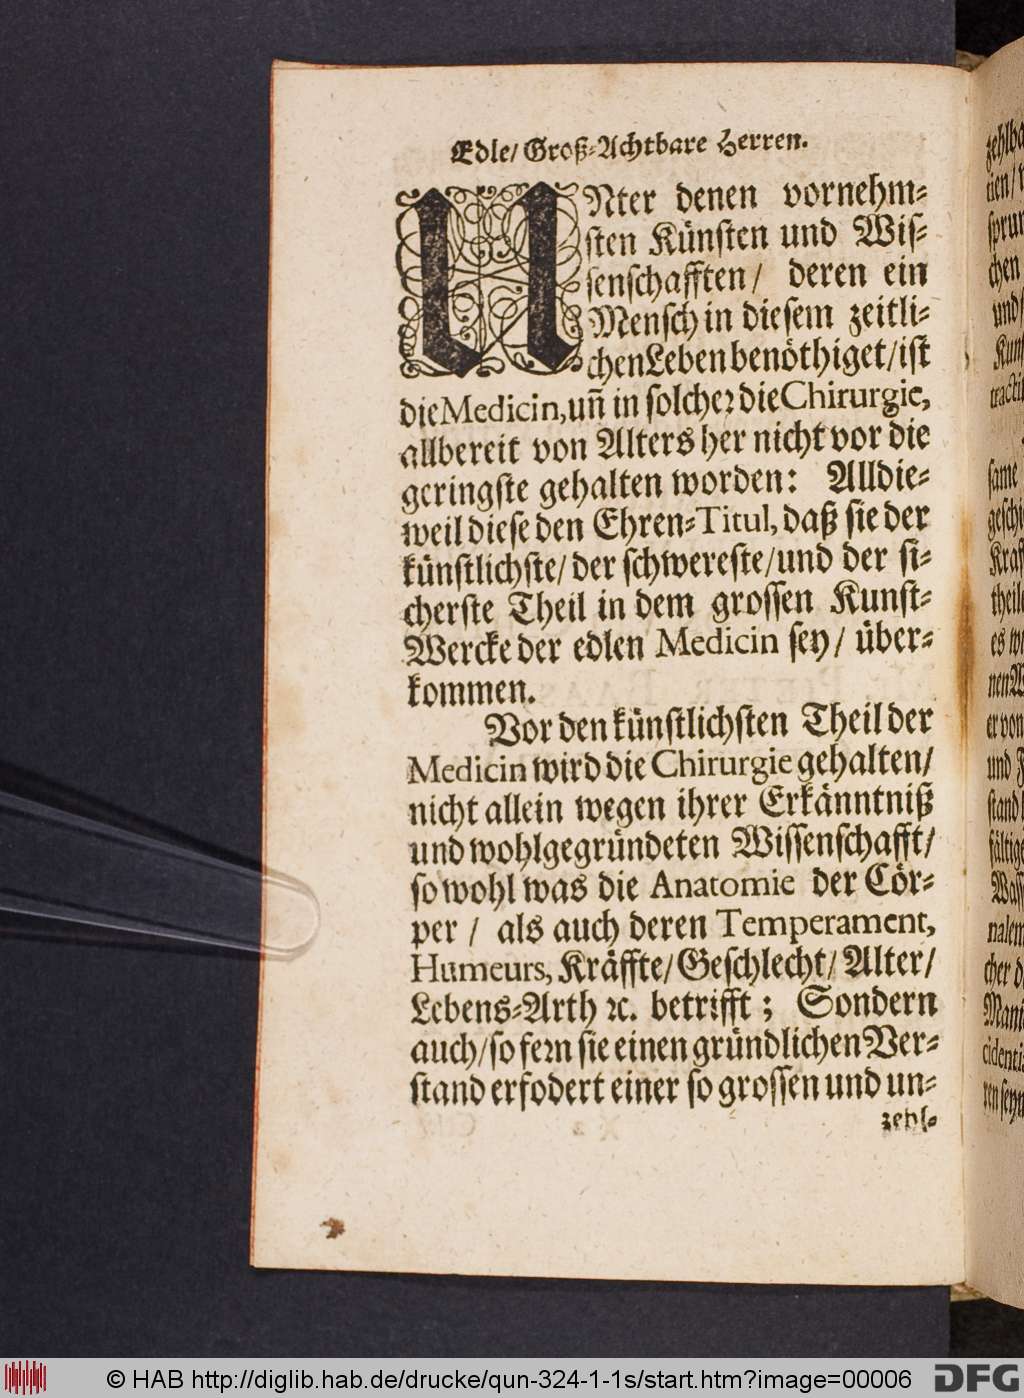 Edle/ Groß-Achtbare Herren.
UNter denen vornehm-
sten Künsten und Wis-
senschafften/ deren ein
Mensch in diesem zeitli-
chen Leben benöthiget/ ist
die Medicin, uñ in solcher die Chirurgie,
allbereit von Alters her nicht vor die
geringste gehalten worden: Alldie-
weil diese den Ehren-Titul, daß sie der
künstlichste/ der schwereste/ und der si-
cherste Theil in dem grossen Kunst-
Wercke der edlen Medicin sey/ über-
kommen.
Vor den künstlichsten Theil der
Medicin wird die Chirurgie gehalten/
nicht allein wegen ihrer Erkänntniß
und wohlgegründeten Wissenschafft/
so wohl was die Anatomie der Cör-
per / als auch deren Temperament,
Humeurs, Kräffte/ Geschlecht/ Alter/
Lebens-Arth ꝛc. betrifft; Sondern
auch/ so fern sie einen gründlichen Ver-
stand erfodert einer so grossen und un-
zehl-
© HAB http://diglib.hab.de/drucke/qun-324-1-1s/start.htm?image=00006
DFG